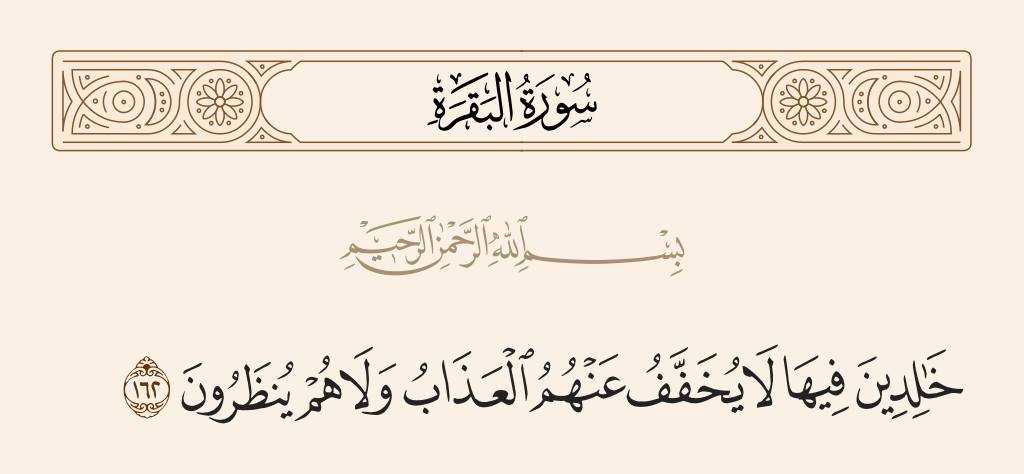 سُورَةُ البَقَرَةِ
بِسْمِ ٱللَّهِ ٱلرَّحْمَٰنِ ٱلرَّحِيمِ
خَٰلِدِينَ فِيهَا لَا يُخَفَّفُ عَنْهُمُ ٱلْعَذَابُ وَلَا هُمْ يُنظَرُونَ ١٦٢